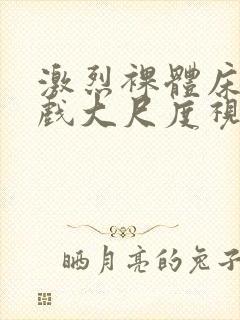 激烈裸體床
戲大尺度視
晒月亮的兔子